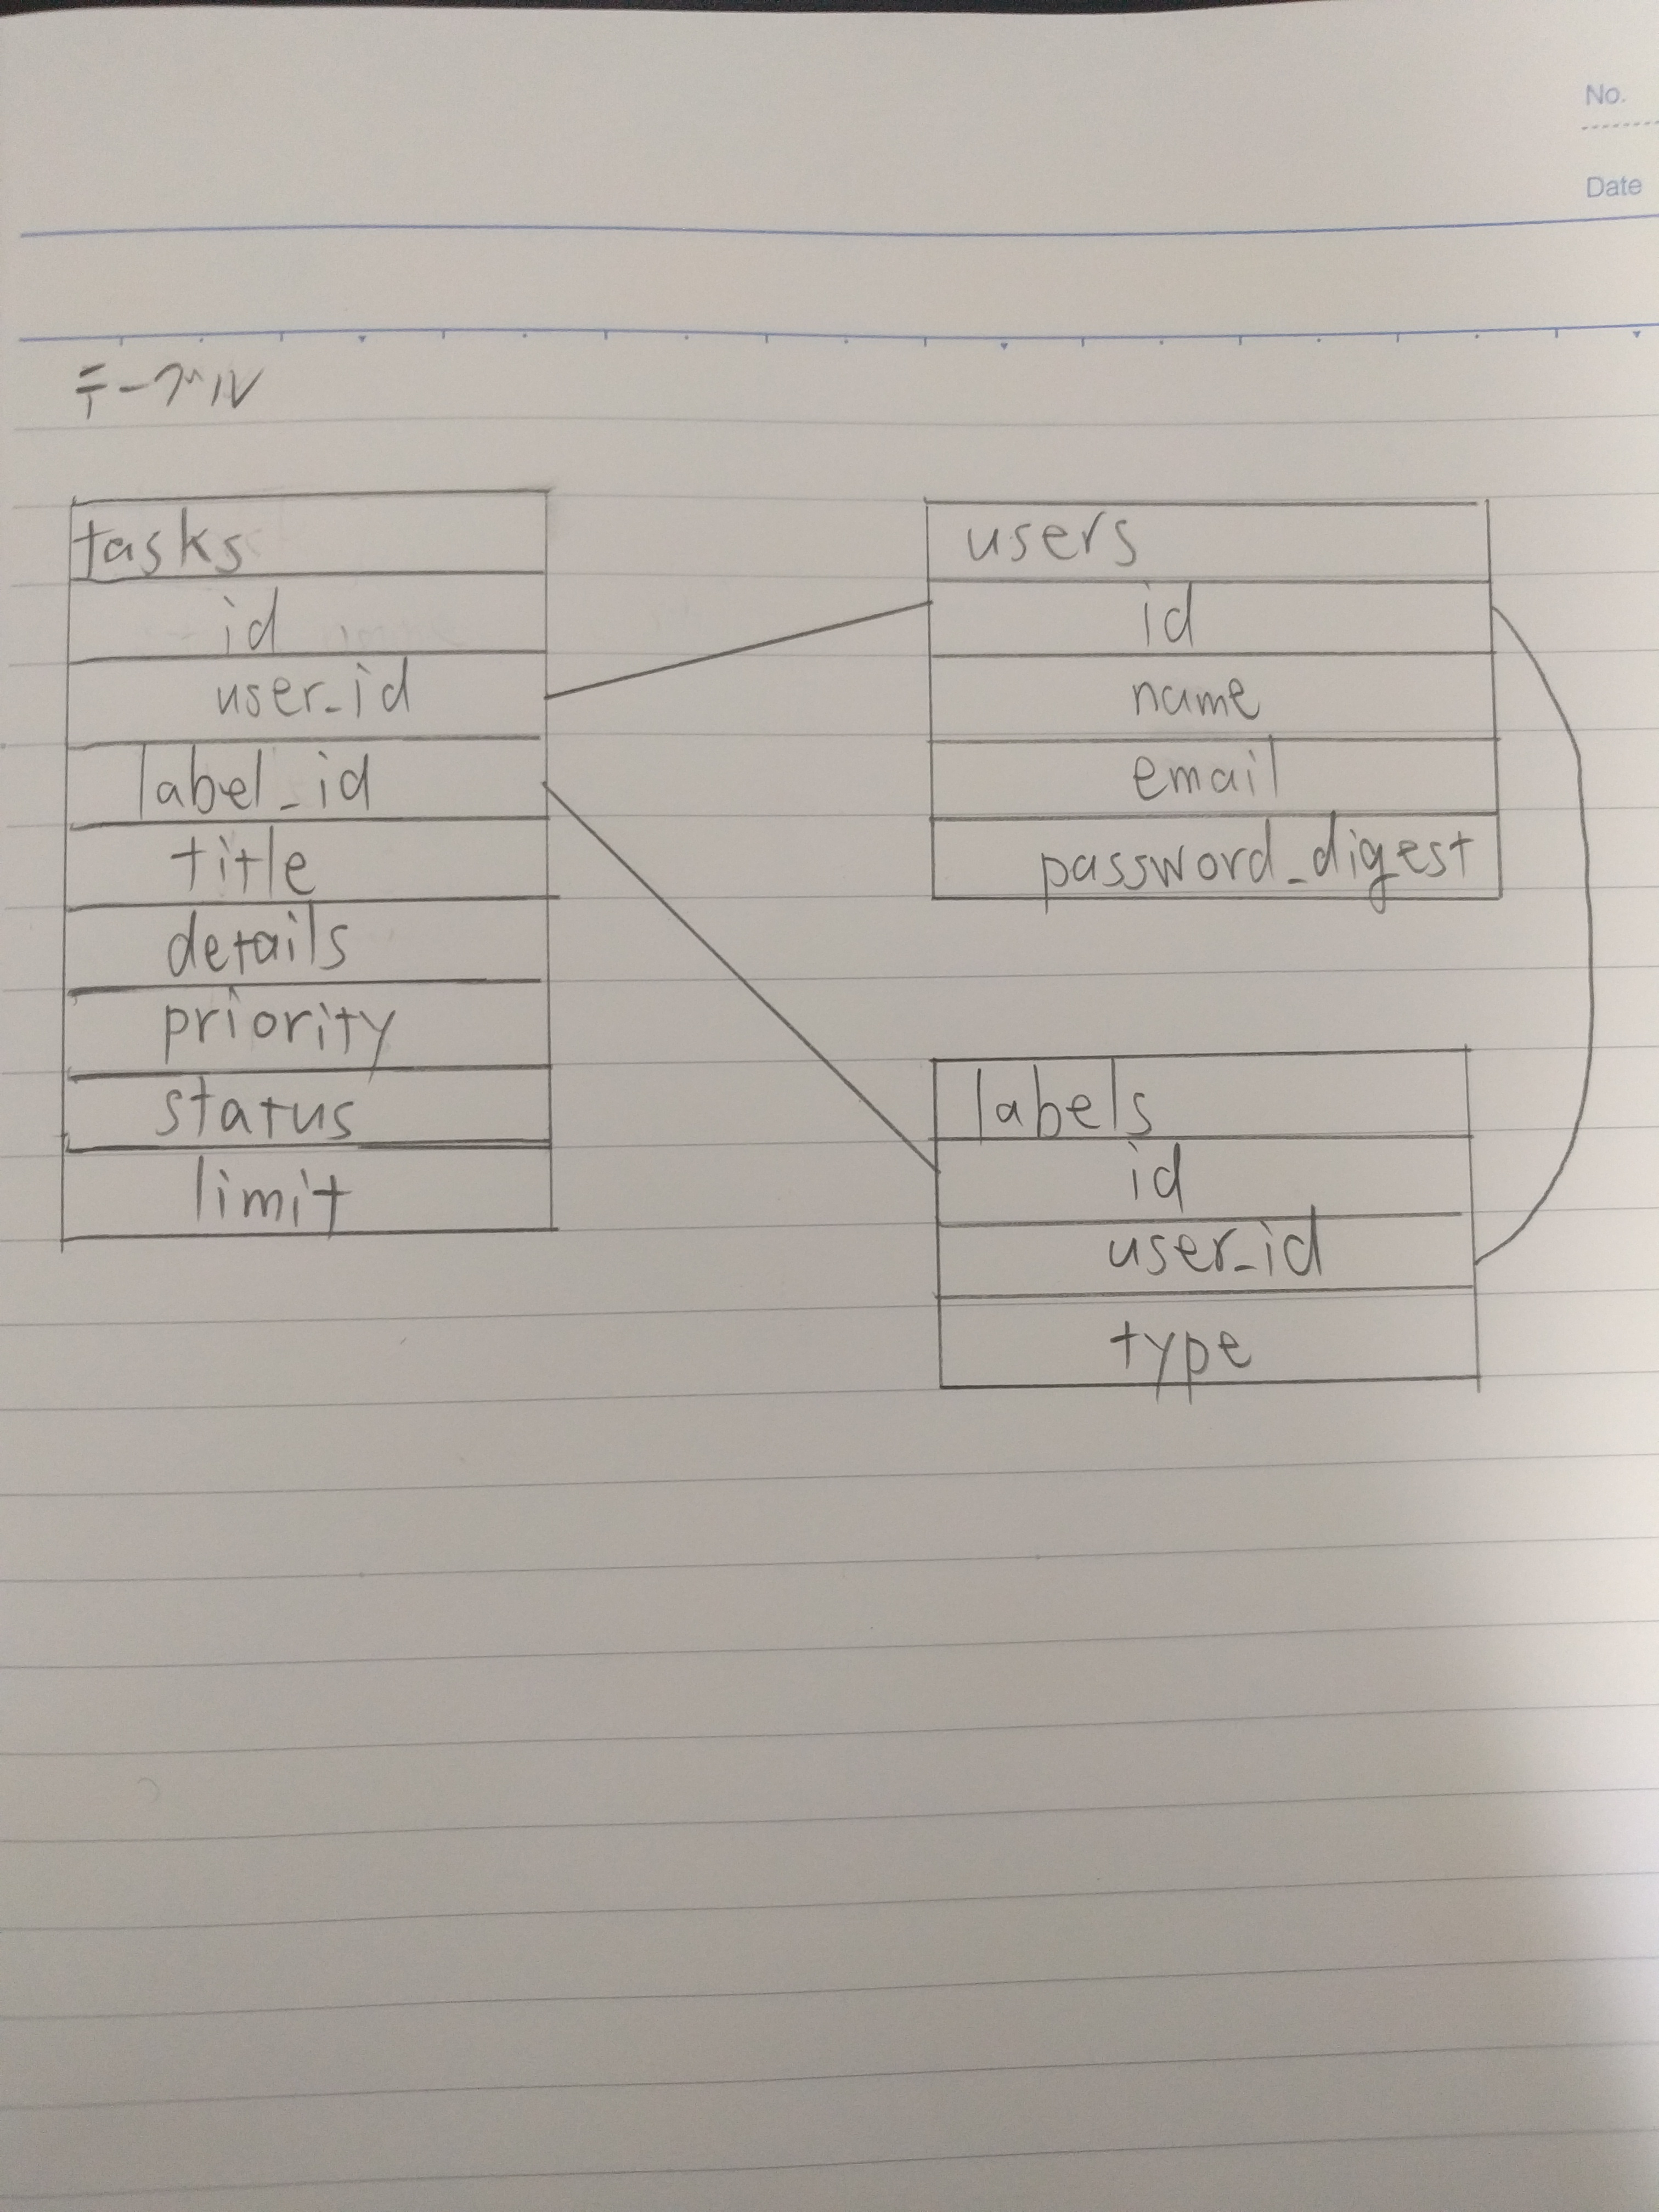 No.
Date
テーブル
tasks
id
user_id
label_id
title
details
priority
status
limit
users
id
name
email
password_digest
labels
id
user_id
type